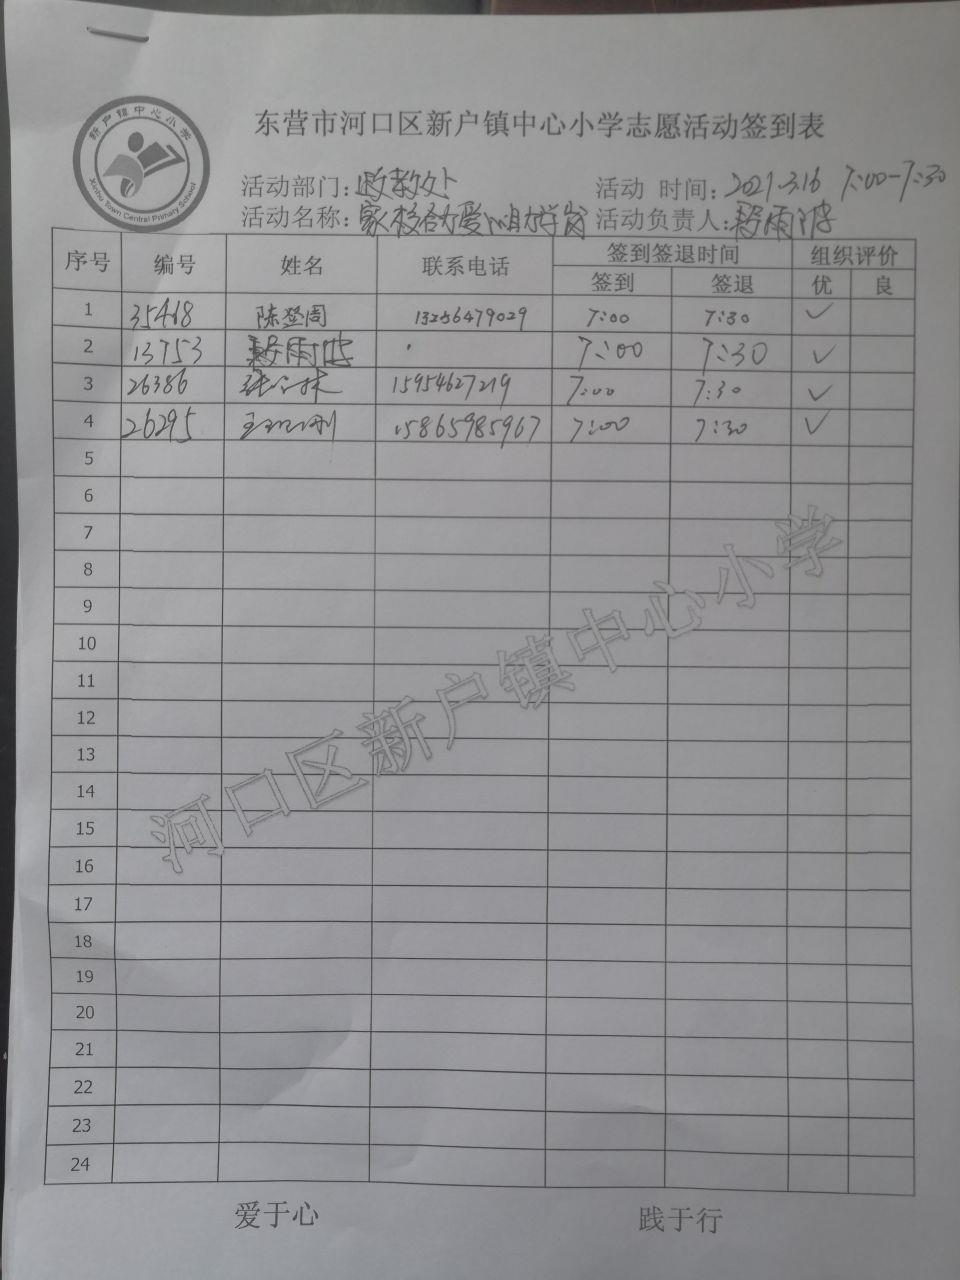 新户镇中心小学
Xinhu Town Central Primary School
东营市河口区新户镇中心小学志愿活动签到表
活动部门：政教处 活动 时间：2021.3.16 7:00-7:30
活动名称：家校 爱 护学岗 活动负责人：
序号 编号 姓名 联系电话 签到签退时间 组织评价
签到 签退 优 良
1 35418 陈登周 13256479029 7:00 7:30 ✓
2 13753 7:00 7:30 ✓
3 26386 15954627219 7:00 7:30 ✓
4 26295 15865985967 7:00 7:30 ✓
5
6
7
8
9
10
11
12
13
14
15
16
17
18
19
20
21
22
23
24
河口区新户镇中心小学
爱于心 践于行